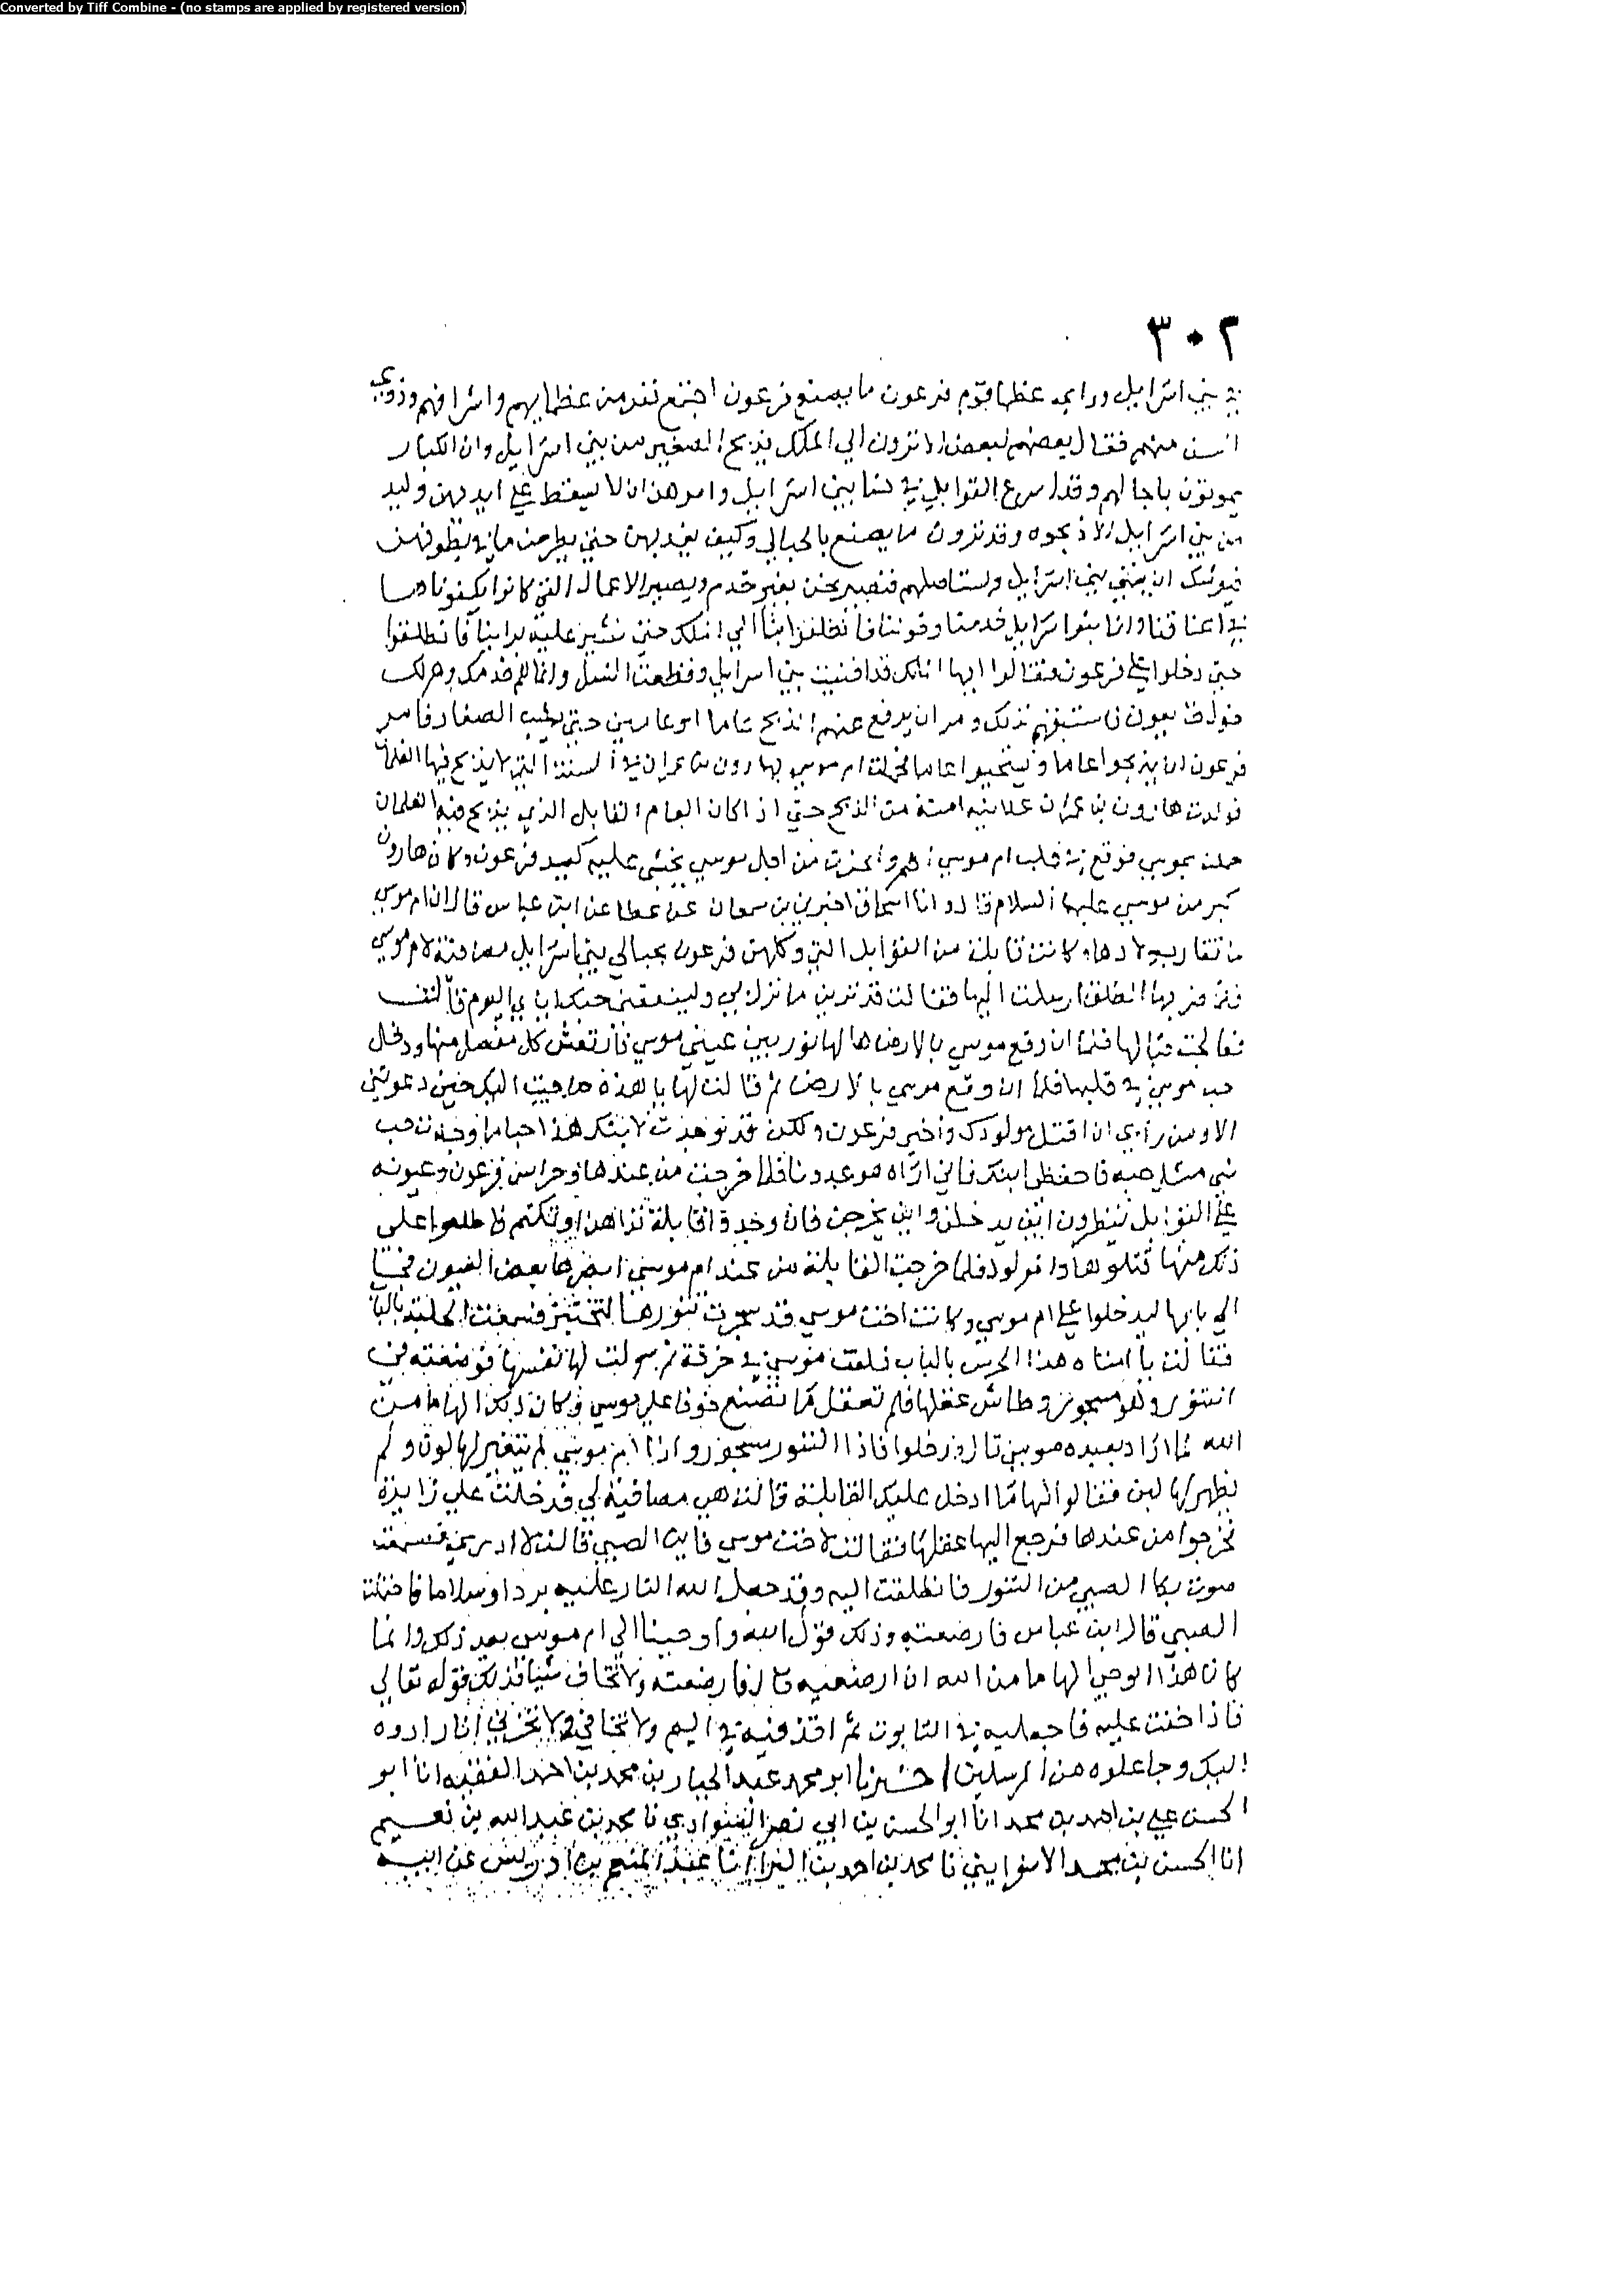 Converted by Tiff Combine - (no stamps are applied by registered version)
٣٠٢
في بني اسرايل وراي عظما قوم فرعون ما يصنع فرعون اجتمع نفر من عظمايهم واشرافهم وذوي
السن منهم فقال بعضهم لبعض الا ترون الي الملك يذبح الصغير من بني اسرايل وان الكبار
يموتون باجالهم وقد اسرع القوابل في نسا بني اسرايل وامرهن ان لا يسقط علي ايديهن وليد
من بني اسرايل الا ذبحوه وقد ترون ما يصنع بالحبالي وكيف يعذبهن حتي يطرحن ما في بطونهن
فيوشك ان يفني بني اسرايل ويستاصلهم فنصير نحن بغير خدم ويصير الاعمال التي كانوا يكفوناها
في اعناقنا وانما بنوا اسرايل خدمنا وقوتنا فانطلقوا بنا الي الملك حتي نشير عليه براينا فانطلقوا
حتي دخلوا علي فرعون فقالوا ايها الملك قد افنيت بني اسرايل وقطعت النسل وانما هم خدمك وهم لك
خول تابعون فاستبقهم لذلك ومر ان يرفع عنهم الذبح عاما او عامين حتي يشب الصغار فامر
فرعون ان يذبحوا عاما ويستحيوا عاما فحملت ام موسي بهارون بن عمران في السنة التي لا يذبح فيها الغلمان
فولدت هارون بن عمران علانيه امنة من الذبح حتي اذا كان العام القابل الذي يذبح فيه الغلمان
حملت بموسي فوقع في قلب ام موسي الهم والحزن من اجل موسي يخشي عليه كيد فرعون وكان هارون
اكبر من موسي عليهما السلام قال وانا اسحاق اخبرني بن سمعان عن عطا عن ابن عباس قال ان ام موسي
لما تقارب ولادها وكانت قابلة من القوابل التي وكلهن فرعون بحبالي بني اسرايل مصافية لام موسي
فلما ضربها الطلق ارسلت اليها فقالت قد ترين ما نزل بي ولينفعني حبك اياي اليوم قالت
فعالجت قبالها فلما ان وقع موسي بالارض هالها نور بين عيني موسي فارتعش كل مفصل منها ودخل
حب موسي في قلبها فلما ان وقع موسي بالارض ثم قالت لها يا هذه ما جيت اليك حين دعوتني
الا ومن رايي ان اقتل مولودك واخبر فرعون ولكن قد وجدت لابنك هذا حبا ما وجدت حب
شي مثل حبه فاحفظي ابنك فاني اراه هو عدونا فلما خرجت من عندها وحراس فرعون وعيونه
علي القوابل ينظرون اين يدخلن واين يخرجن فان وجدوا قابلة تداهن او تكتم فاطلعوا علي
ذلك منها قتلوها والمولود فلما خرجت القابلة من عند ام موسي ابصرها بعض العيون فجا
الي بابها ليدخلوا علي ام موسي وكانت اخت موسي قد سجرت تنورها لتختبز فسمعت الجلبة بالباب
فقالت يا امتاه هذا الحرس بالباب فلفت موسي في خرقة ثم سولت لها نفسها فوضعته في
التنور وهو مسجور وطاش عقلها فلم تعقل ما تصنع خوفا علي موسي وكان ذلك الهاما من
الله لما اراد بعبده موسي قال فدخلوا فاذا التنور مسجور واذا ام موسي لم يتغير لها لون ولم
يظهر لها لبن فقالوا لها ما ادخل عليك القابلة قالت هي مصافية لي فدخلت علي زايرة
فخرجوا من عندها فرجع اليها عقلها فقالت لاخت موسي فاين الصبي قالت لا ادري فسمعت
صوت بكا الصبي من التنور فانطلقت اليه وقد جعل الله النار عليه بردا وسلاما فاحتملت
الصبي قال ابن عباس فارضعته وذلك قول الله واوحينا الي ام موسي بعد ذلك وانما
كان هذا الوحي الهاما من الله ان ارضعيه قال فارضعته ولا تخاف شيا فذلك قوله تعالي
فاذا خفت عليه فاجعليه في التابوت ثم اقذفيه في اليم ولا تخافي ولا تحزني انا رادوه
اليك وجاعلوه من المرسلين اخبرنا ابو محمد عبد الجبار بن محمد بن احمد الفقيه انا ابو
الحسن علي بن احمد بن محمد انا ابو الحسن بن ابي نصر نا محمد بن عبد الله بن نعيم
انا الحسن بن محمد الاسفرايني نا محمد بن احمد بن البرا نا عبد المنعم بن ادريس عن ابيه